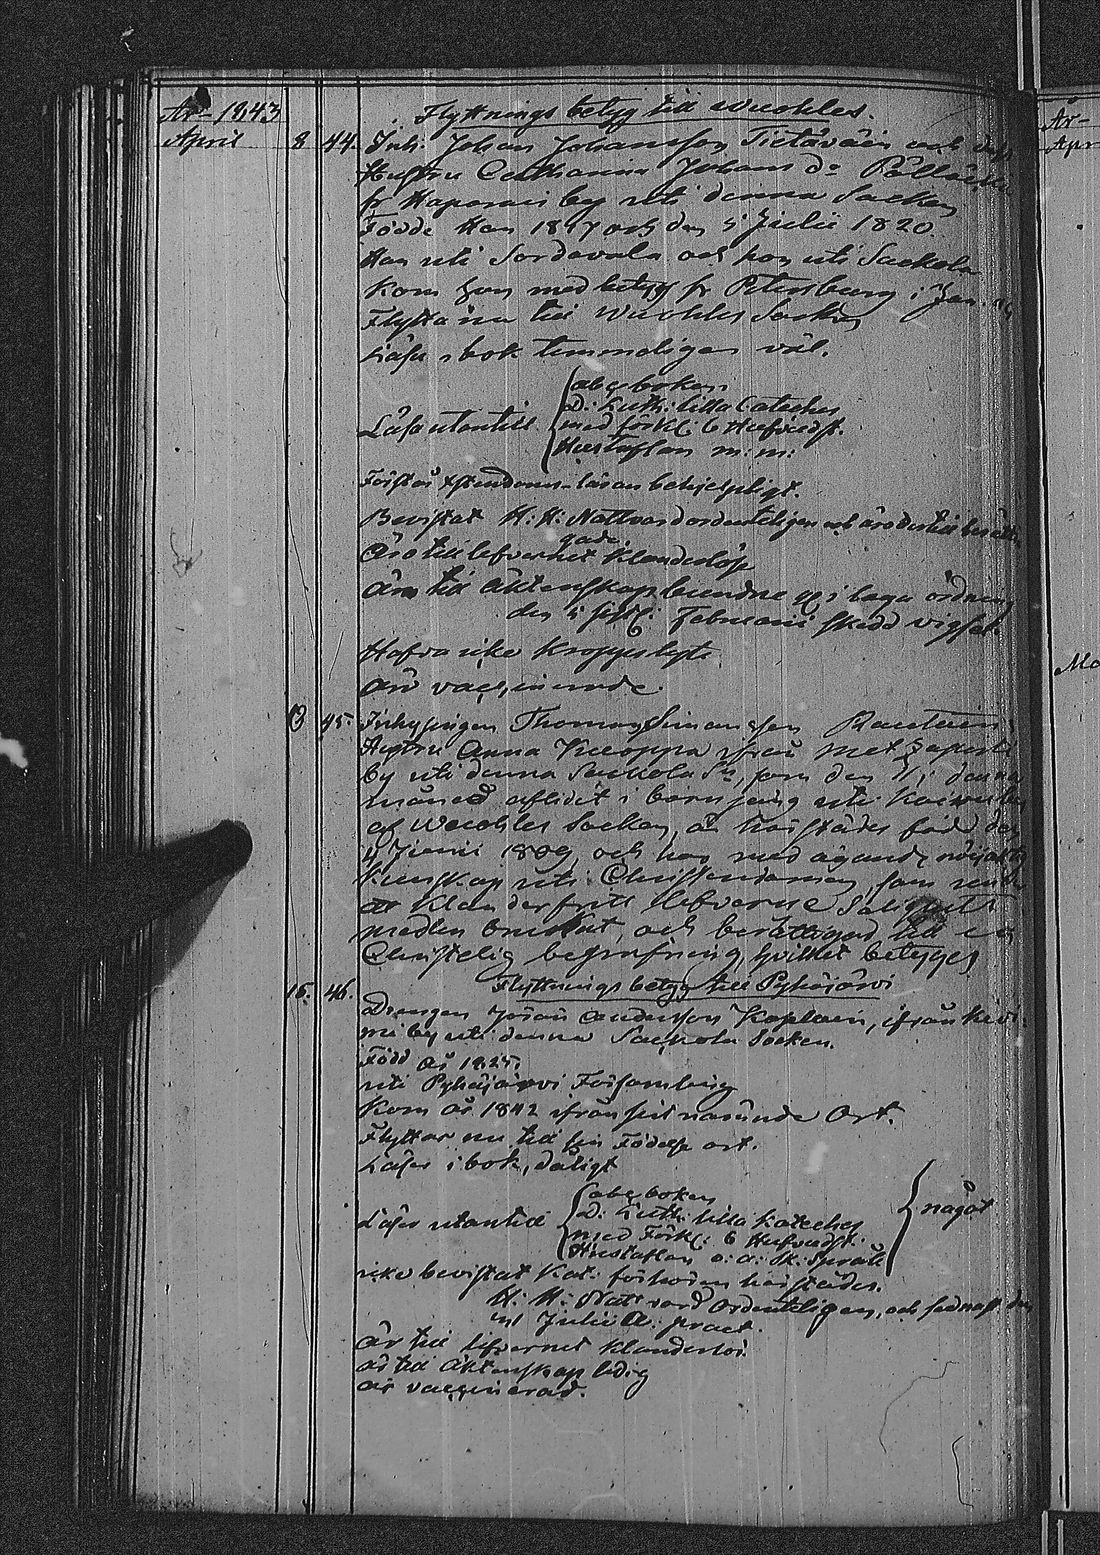 År 1843
Flyttnings betyg till Wuoheles.
April 8 44. Inh. Johan Johansson Tietäväin och dess
Hustru Catharina Johans dr Pölläin
fr Haparais by uti denna Sacken
Födde Han 1817 och den 5 Julii 1820.
Han uti Sordavala och hon uti Sackola
Kom hon med betyg fr Petersburg i Jan.
Flytta nu till Wuoheles Socken
Läsa i bok temmeligen väl.
Läsa utantill
abc boken
D: Luth: lilla Cateches
med förkl: 6 Hufvudst.
Hustaflan m: m:
Förstår Christendoms-läran behjelpligt.
Bevistat H: H: Nattvard ordenteligen och äro dertill berätti
gade.
Äro till lefvernet Klanderlöse
Äro till Äktenskap bundne i laga ordning
den 5 sistl: Februarii skedd vigsel.
Hafva icke Kroppslyte
Äro vaccinerade.
13 45. Inhysingen Thomas Simonsson Rautiains
Hustru Anna Kuoppa ifrån
by uti denna Sackola Sn, som den i denna
månad aflidit i barnsäng uti
af Wuoheles Socken, är härstädes född den
4 Junii 1809, och har med ägande
Kunskap uti Christendomen, som
ett Klanderfritt lefverne Salighets
medlen brukat, och berättigad till en
Christelig begrafning, hvilket betyges
Flyttnings betyg till Pyhäjärvi
15. 46. Drengen Johan Andersson Kaplain, ifrån Kivi:
by uti denna Sackola Socken.
Född år 1825.
uti Pyhäjärvi Församling
Kom år 1842 ifrån sist nämnde Ort.
Flyttar nu till sin Födelse ort.
Läser i bok, dåligt
Läser utantill
abc boken
D: Luth: lilla Kateches
med Förkl: 6 Hufvudst.
Hustaflan o: a: Sk: Språk
något
icke bevistat Kat: förhören härstädes.
H: H: Nattvard Ordenteligen, och sednast den
Julii A: praet.
Är till lefvernet Klanderlös.
är till Äktenskap ledig
är vaccinerad.